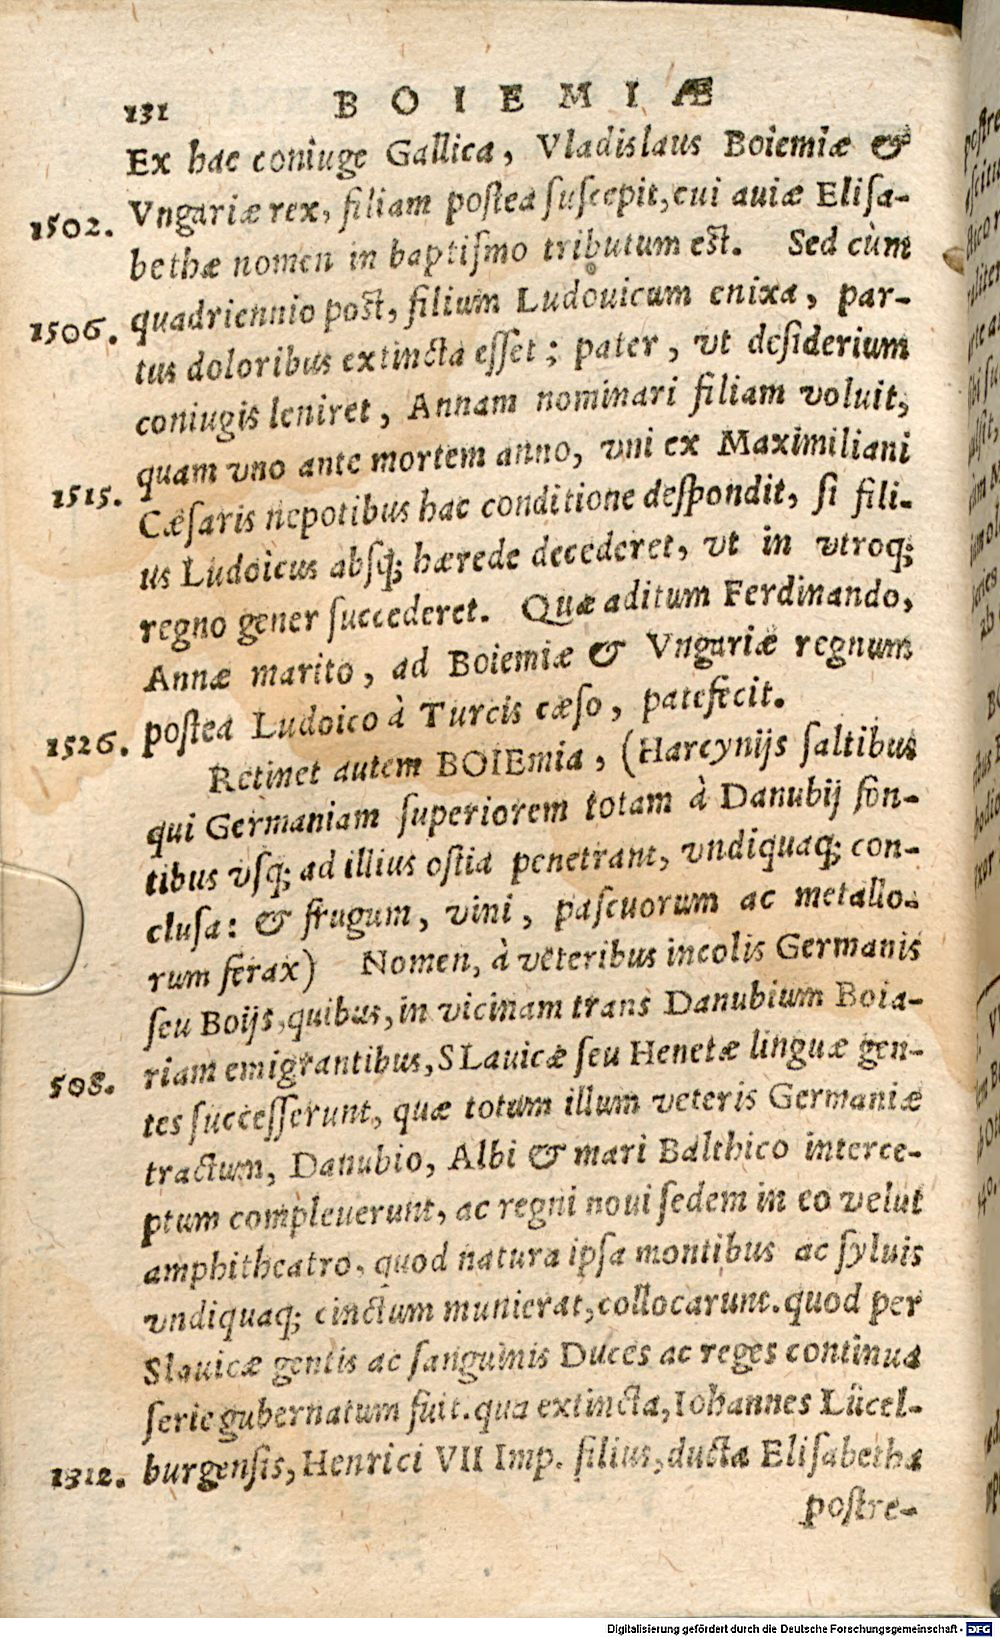 131 BOIEMIÆ
Ex hac coniuge Gallica, Vladislaus Boiemiæ &
1502. Vngariæ rex, filiam postea suscepit, cui auiæ Elisa-
bethæ nomen in baptismo tributum est. Sed cùm
1506. quadriennio post, filium Ludouicum enixa, par-
tus doloribus extincta esset; pater, vt desiderium
coniugis leniret, Annam nominari filiam voluit,
1515. quam vno ante mortem anno, vni ex Maximiliani
Cæsaris nepotibus hac conditione despondit, si fili-
us Ludoicus absq; hærede decederet, vt in vtroq;
regno gener succederet. Quæ aditum Ferdinando,
Annæ marito, ad Boiemiæ & Vngariæ regnum
1526. postea Ludoico à Turcis cæso, patefecit.
Retinet autem BOIEmia, (Harcynijs saltibus
qui Germaniam superiorem totam à Danubij fon-
tibus vsq; ad illius ostia penetrant, vndiquaq; con-
clusa: & frugum, vini, pascuorum ac metallo-
rum ferax) Nomen, à veteribus incolis Germanis
seu Boijs, quibus, in vicinam trans Danubium Boia-
508. riam emigrantibus, SLauicæ seu Henetæ linguæ gen-
tes successerunt, quæ totum illum veteris Germaniæ
tractum, Danubio, Albi & mari Balthico interce-
ptum compleuerunt, ac regni noui sedem in eo velut
amphitheatro, quod natura ipsa montibus ac syluis
vndiquaq; cinctum munierat, collocarunt. quod per
Slauicæ gentis ac sanguinis Duces ac reges continua
serie gubernatum fuit. qua extincta, Iohannes Lücel-
1312. burgensis, Henrici VII Imp. filius, ducta Elisabetha
postre-
Digitalisierung gefördert durch die Deutsche Forschungsgemeinschaft - DFG